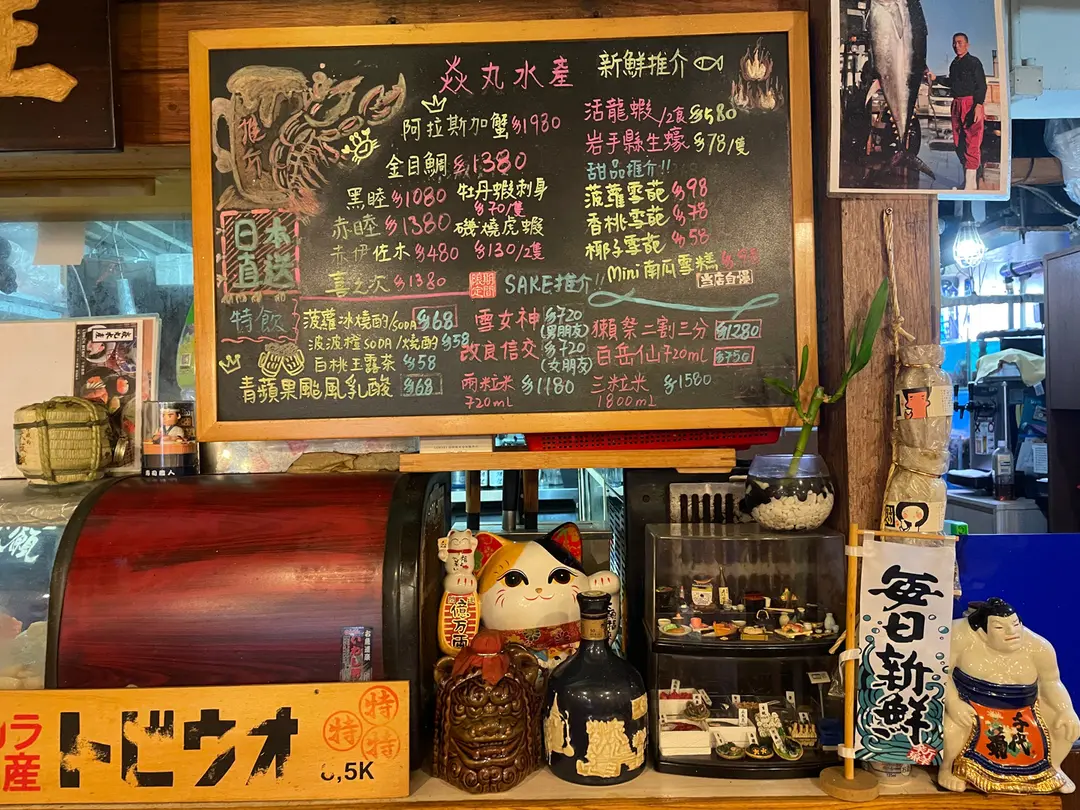 焱丸水產
新鮮推介
推介
阿拉斯加蟹 $1980
金目鯛 $1380
黑睦 $1080
赤睦 $1380
赤伊佐木 $480
喜之次 $1380
牡丹蝦刺身
$70/隻
磯燒虎蝦
$130/2隻
活龍蝦/2食 $580
岩手縣生蠔 $78/隻
甜品推介!!
菠蘿雪葩 $98
香桃雪葩 $78
椰子雪葩 $58
Mini南瓜雪糕
日本
直送
特飲
菠蘿冰燒酌/SODA $68
波波橙SODA/燒酌 $58
白桃玉露茶 $58
青蘋果颱風乳酸 $68
期間
限定
SAKE推介!!
雪女神 $720
(男朋友)
改良信交 $720
(女朋友)
兩粒米 $1180
720mL
獺祭二割三分 $1280
百岳仙720mL $750
三粒米 $1580
1800mL
億万両
毎日新鮮
千代菊
産
トビウオ
特
特
特
8,5K